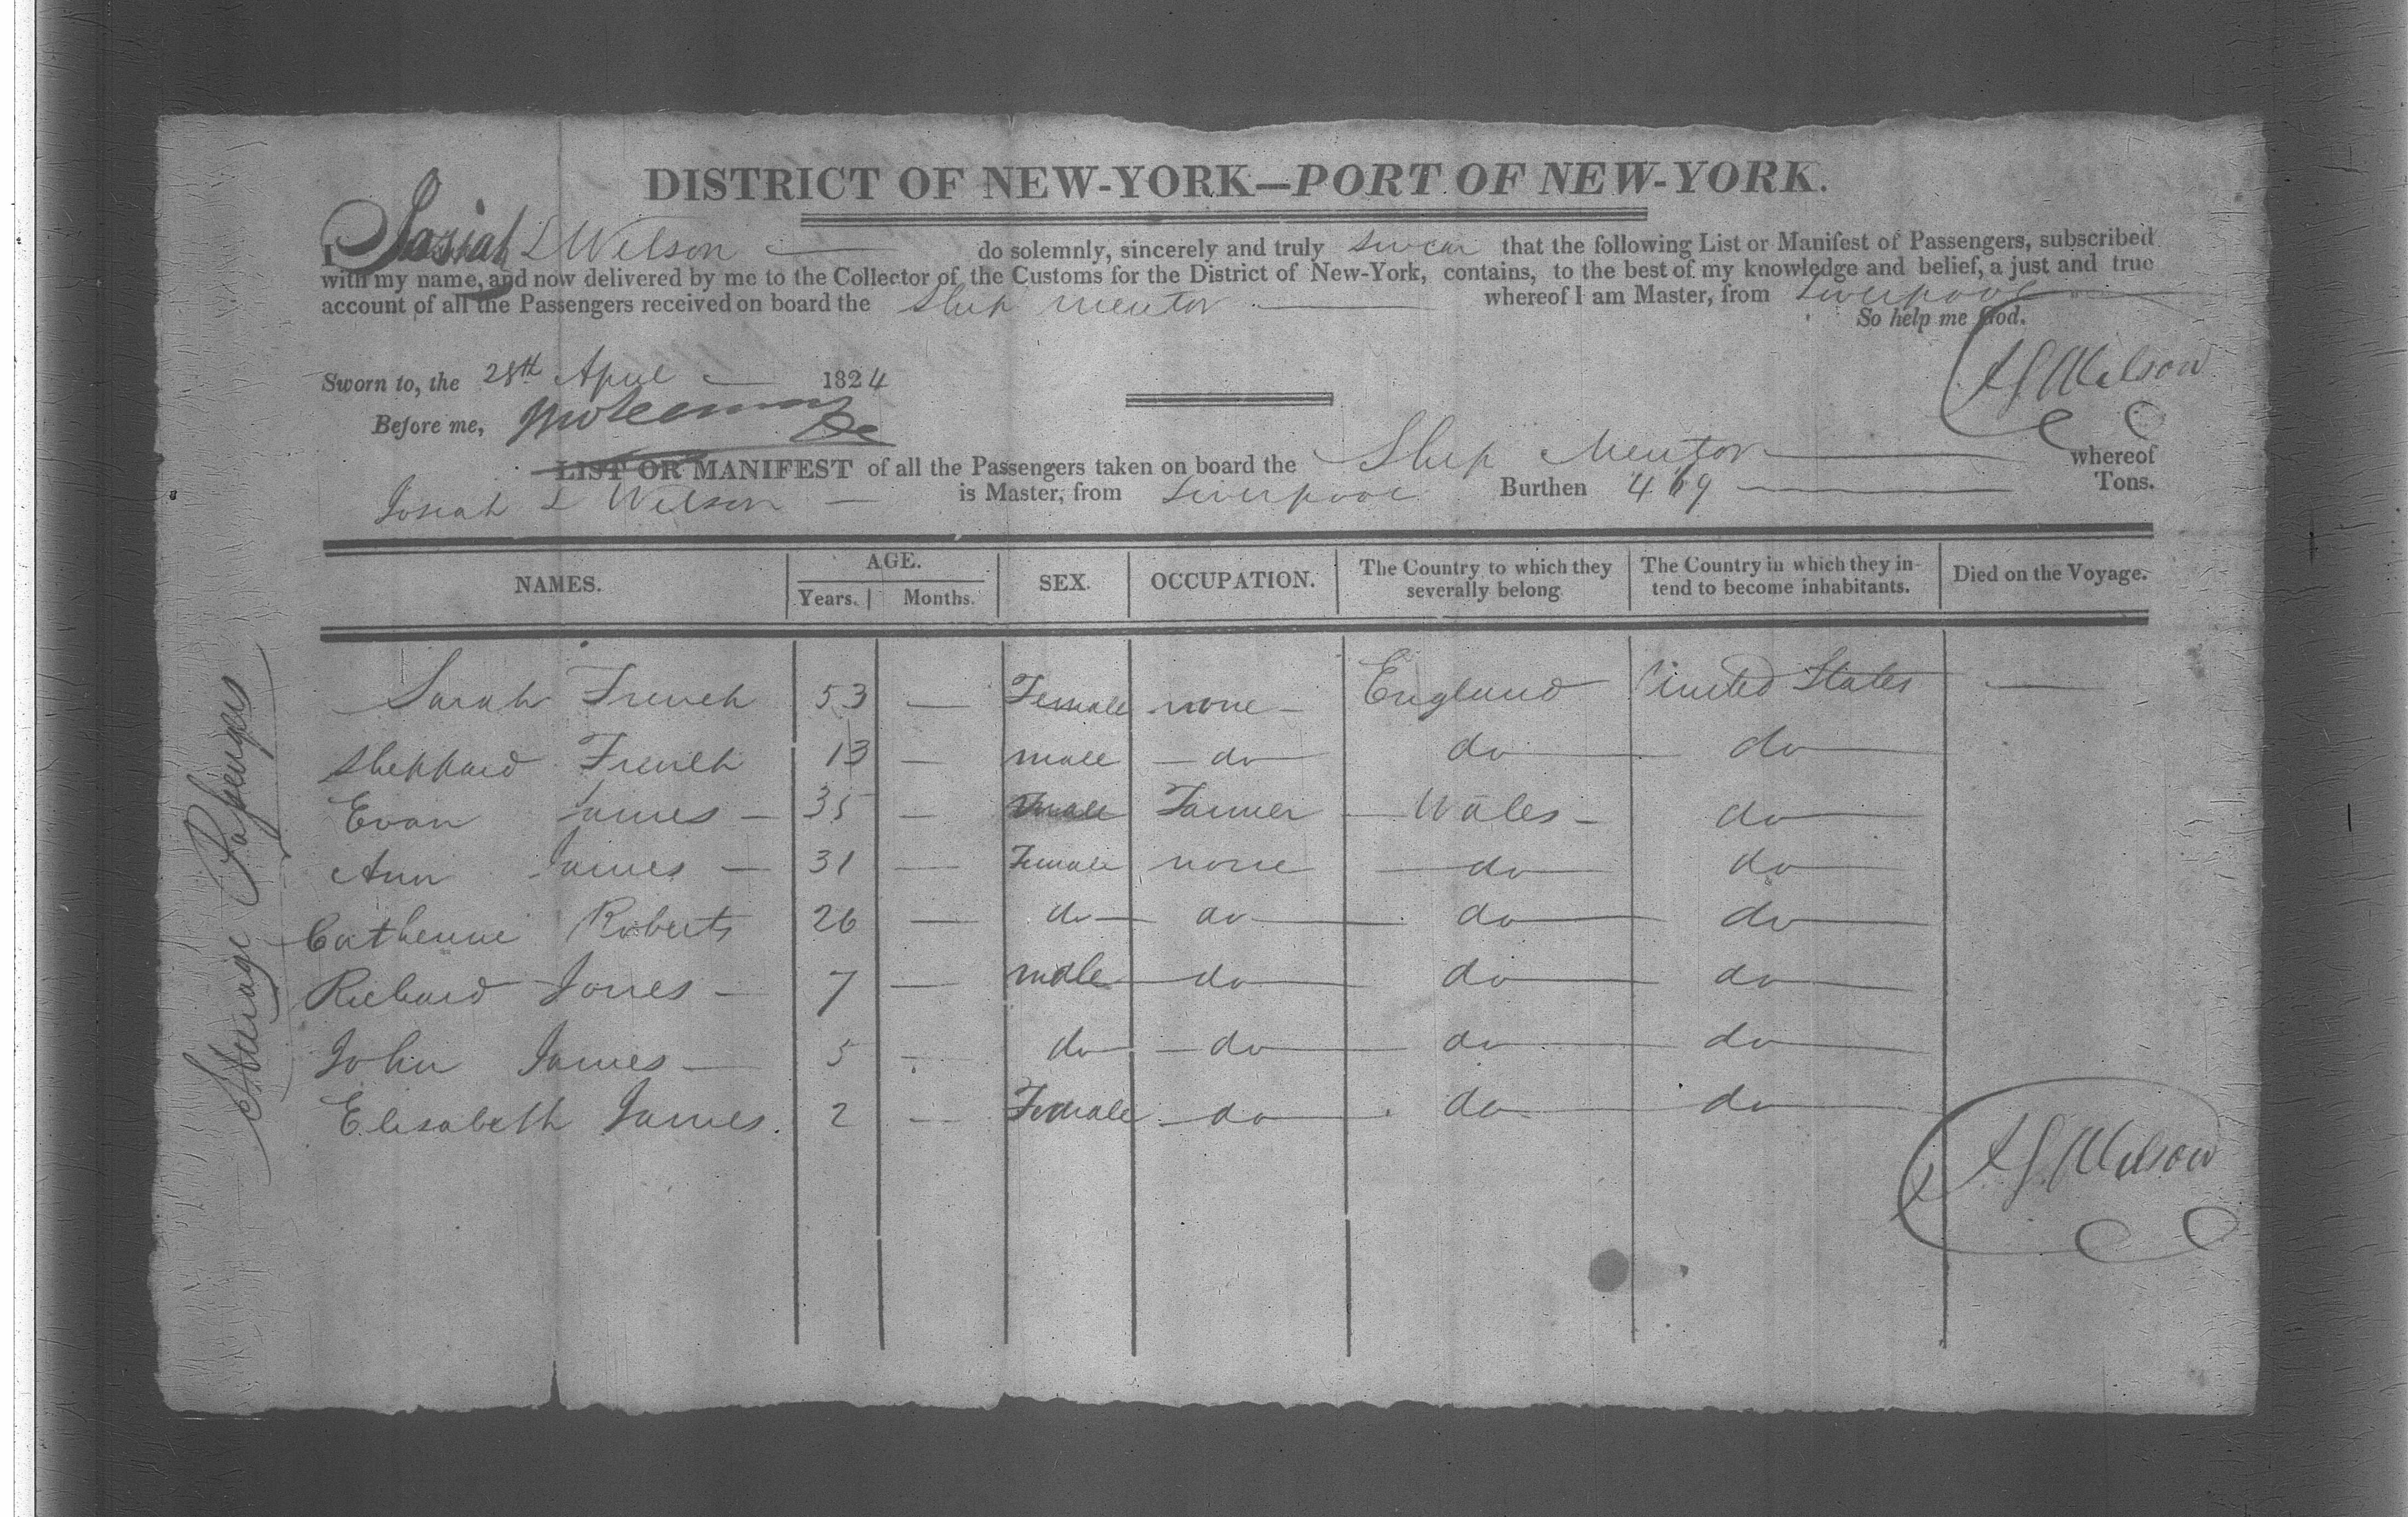 DISTRICT OF NEW-YORK—PORT OF NEW-YORK.
I Josiah L Wilson do solemnly, sincerely and truly swear that the following List or Manifest of Passengers, subscribed
with my name, and now delivered by me to the Collector of the Customs for the District of New-York, contains, to the best of my knowledge and belief, a just and true
account of all the Passengers received on board the Ship Mentor whereof I am Master, from Liverpool
So help me God.
Sworn to, the 28th April 1824
J L Wilson
Before me,
LIST OR MANIFEST of all the Passengers taken on board the Ship Mentor whereof
Josiah L Wilson is Master, from Liverpool Burthen 469 Tons.
NAMES. AGE. Years. Months. SEX. OCCUPATION. The Country to which they severally belong The Country in which they intend to become inhabitants. Died on the Voyage.
Steerage Passengers
Sarah French 53 — Female none — England United States —
Sheppard French 13 — male — do do do
Evan James — 35 — male Farmer — Wales — do
Ann James — 31 — Female none — do do
Catherine Roberts 26 — do do do do
Richard Jones — 7 — male do do do
John James — 5 — do — do do do
Elisabeth James. 2 — Female — do do do
J L Wilson